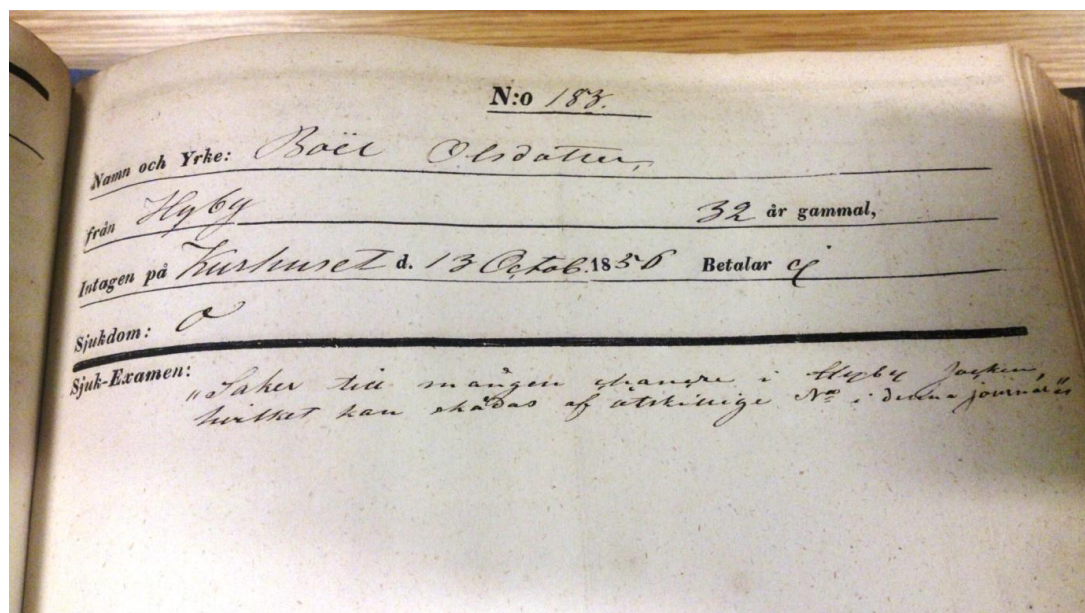 N:o 183.
Namn och Yrke: Boel Olsdotter,
från Hyby 32 år gammal,
Intagen på Kurhuset d. 13 Octob. 1856 Betalar ej
Sjukdom: O
Sjuk-Examen:
"Saker till mången chancre i Hyby socken,
hvilket kan skådas af åtskillige N:os i denna journal"